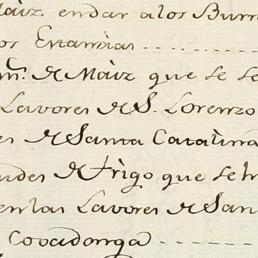 Maiz endar alos Burr
os Estamias
m.s de Maiz que se se
Lavores de S. Lorenzo
es de Santa Catalina
udes de Trigo que se h
enlas Lavores de San
Covadonga